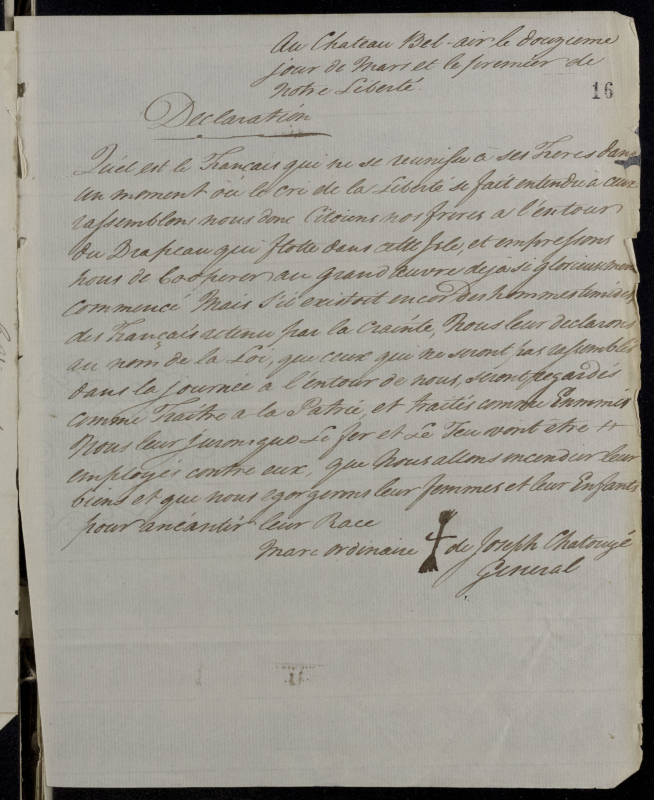 Au Chateau Bel-air le douzieme
jour de Mars et le premier de
Notre Liberté
16
Declaration
Quel est le Français qui ne se reunisse à ses Freres dans
un moment où le cri de la Liberté se fait entendre à eux
rassemblons nous donc Citoiens nos freres a l'entour
du Drapeau qui flotte dans cette Isle, et empressons
nous de Cooperer au grand œuvre deja si glorieusement
commencé Mais s'il existoit encor des hommes timides
des Français retenu par la crainte, Nous leur declarons
au nom de la Loi, que ceux qui ne seront pas rassemblés
dans la journee a l'entour de nous, seront regardés
comme Traître a la Patrie, et traités comme Ennemis
Nous leur jurons que Le fer et Le Feu vont etre
employés contre eux, que Nous allons incendier leur
biens et que nous egorgerons leur femmes et leur Enfants
pour anéantir leur Race
Marc ordinaire de Joseph Chatoüyé
General